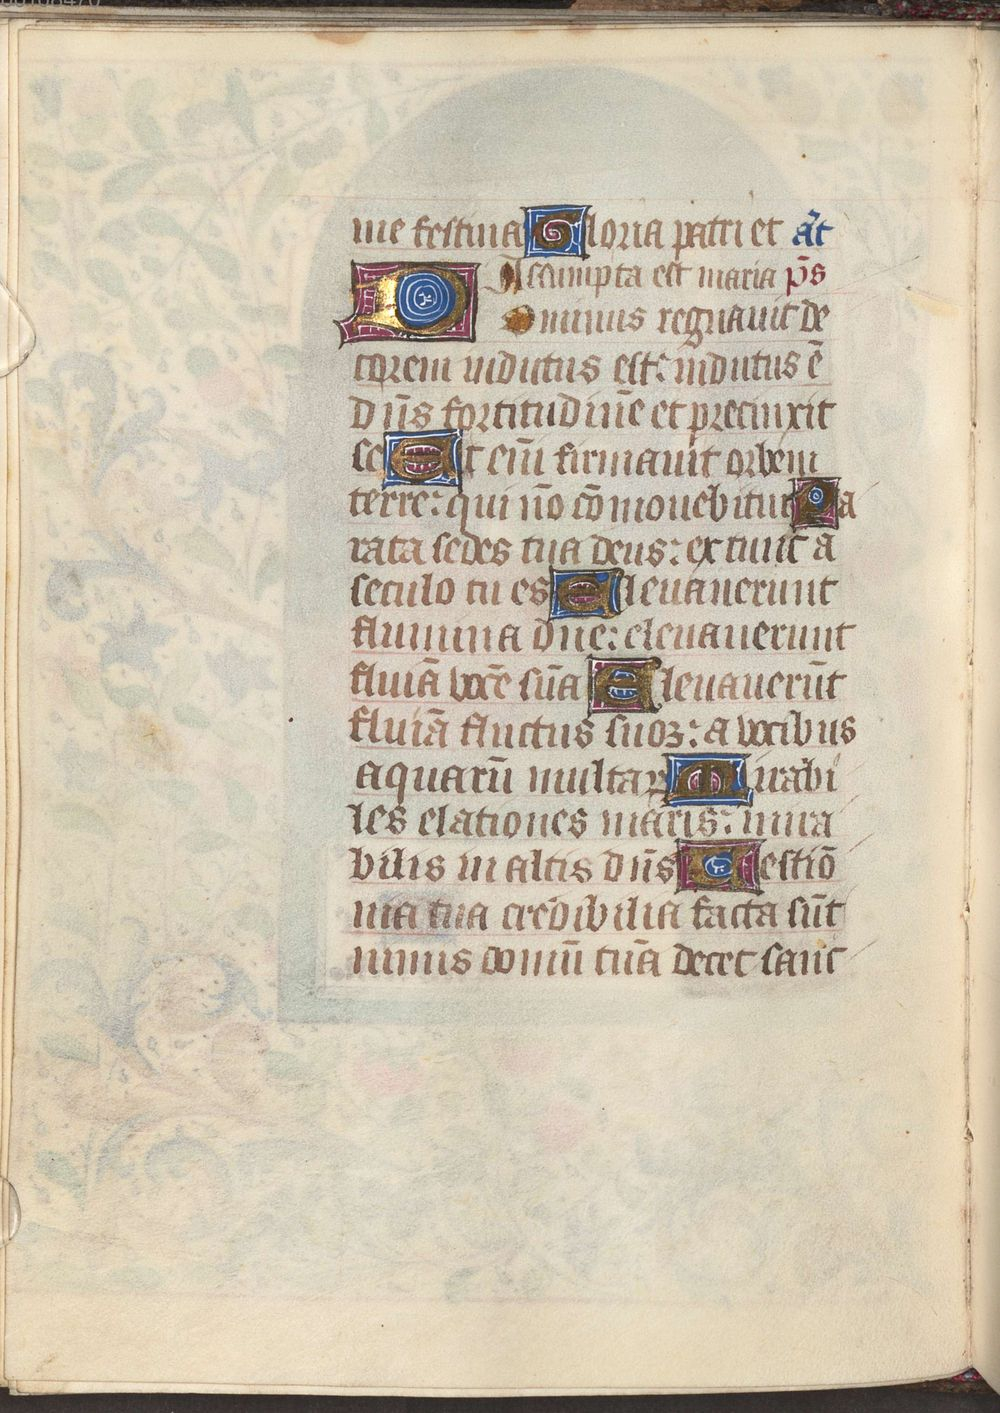 me festina Gloria patri et añt
Assumpta est maria p̄s
Dominus regnauit de
corem indutus est: indutus ē
dn̄s fortitudin̄e et precinxit
se Et eni̅ firmauit orbem
terre: qui nō cōmouebitur Pa
rata sedes tua deus: ex tunc a
seculo tu es Eleuauerunt
flumina dn̄e: eleuauerunt
fluīa vocē sūa Eleuauerūt
fluīa fluctus suoꝝ: a vocibus
aquarū multaꝝ Mirabi
les elationes maris: mira
bilis in altis dn̄s Testiō
nia tua credibilia facta sūt
nimis domū tūa decet sanc